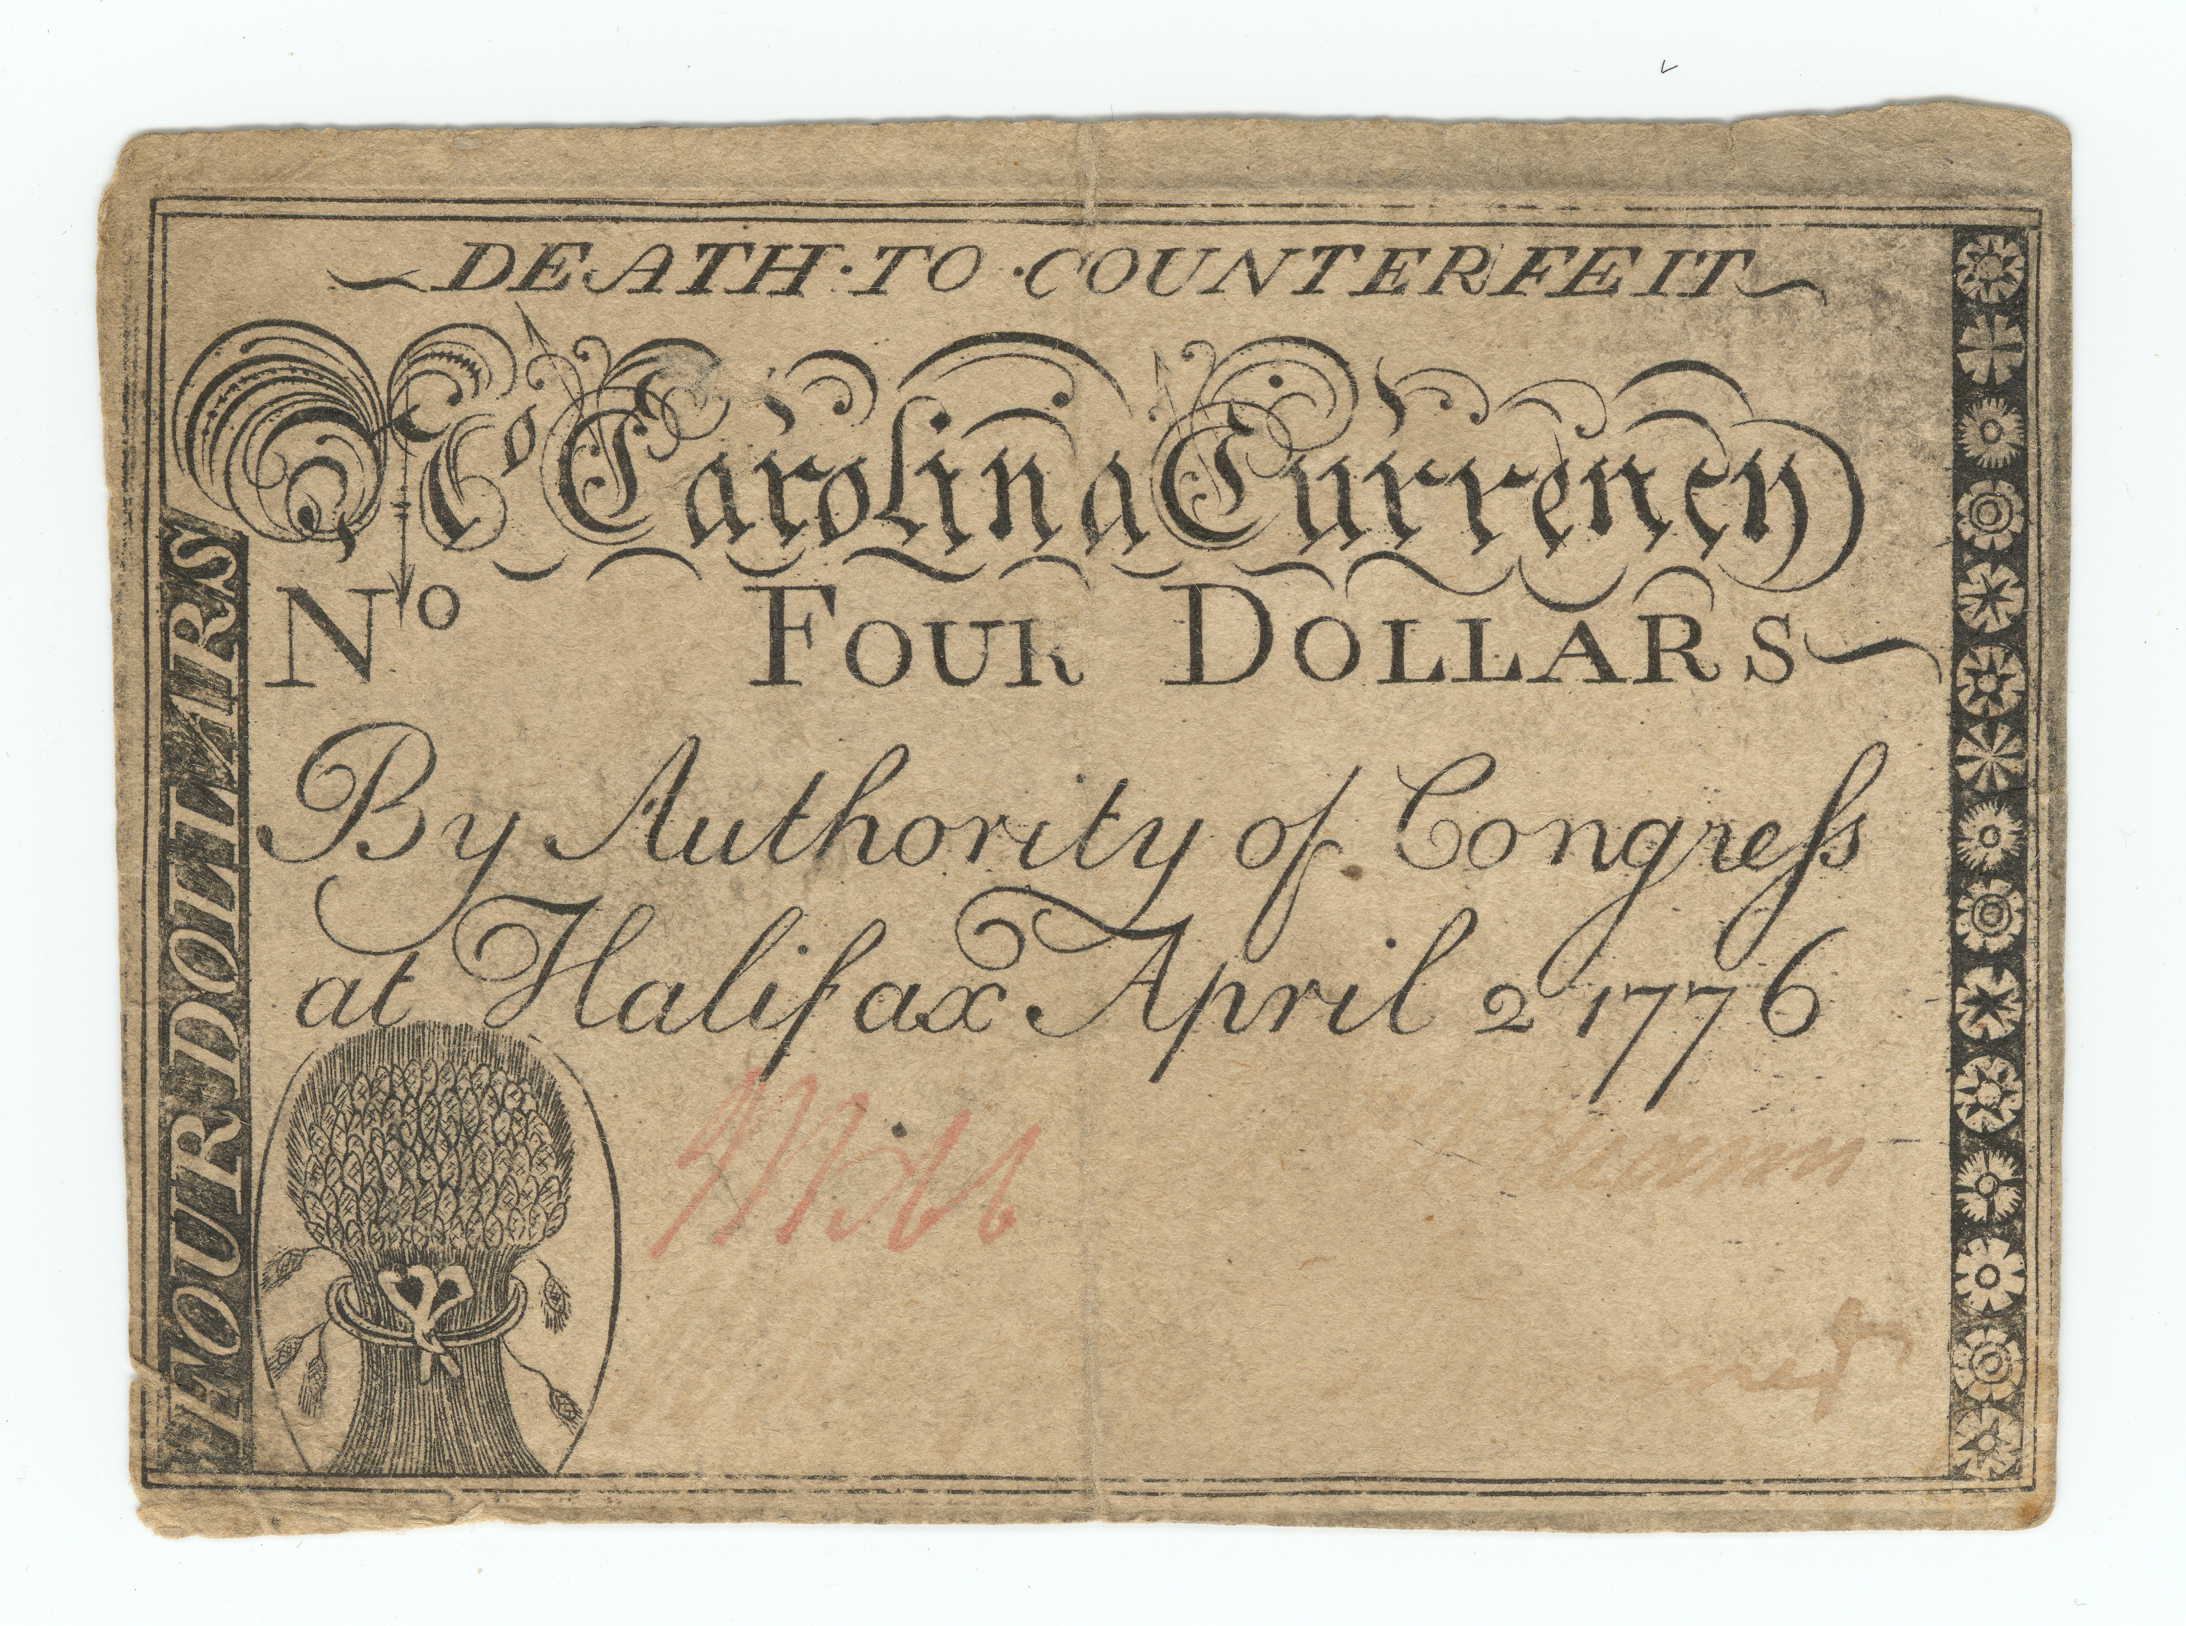 DEATH·TO·COUNTERFEIT
No Carolina Currency
No FOUR DOLLARS
By Authority of Congreſs
at Halifax April 2 1776
FOUR DOLLARS